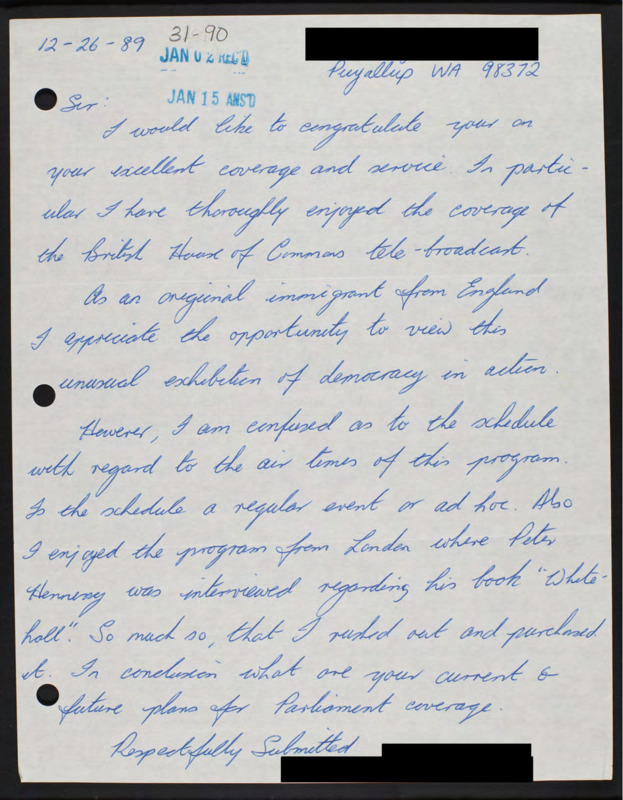 12-26-89
31-90
JAN 02 REC'D
JAN 15 ANS'D
Puyallup WA 98372
Sir:
I would like to congratulate your on
your excellent coverage and service. In partic-
ular I have thoroughly enjoyed the coverage of
the British House of Commons tele-broadcast.
As an origional immigrant from England
I appriciate the opportunity to view this
unusual exhibition of democracy in action.
However, I am confused as to the schedule
with regard to the air times of this program.
Is the schedule a regular event or ad hoc. Also
I enjoyed the program from London where Peter
Hennesy was interviewed regarding his book "White-
hall". So much so, that I rushed out and purchased
it. In conclusion what are your current &
future plans for Parliament coverage.
Respectfully Submitted